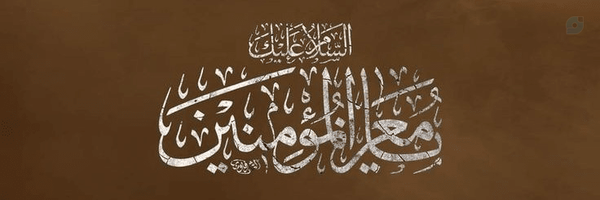 السلام عليك
يا معز المؤمنين